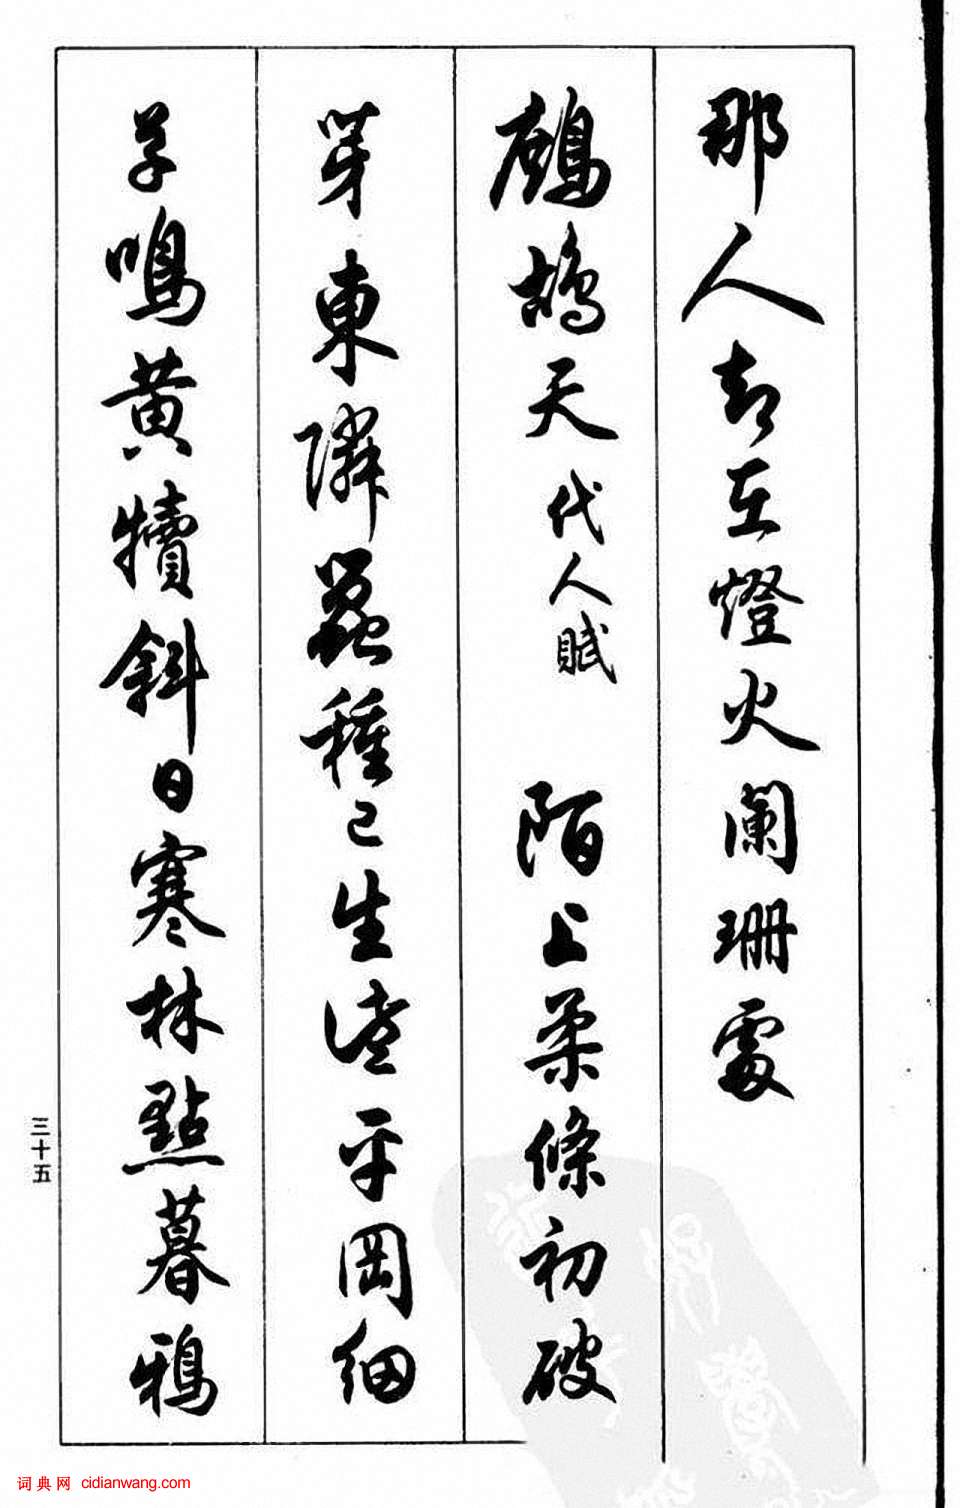 那人却在燈火闌珊處
鷓鴣天 代人賦 陌上柔條初破
芽東隣蠶種已生些平岡細
草鳴黃犢斜日寒林點暮鴉
三十五
词典网 cidianwang.com